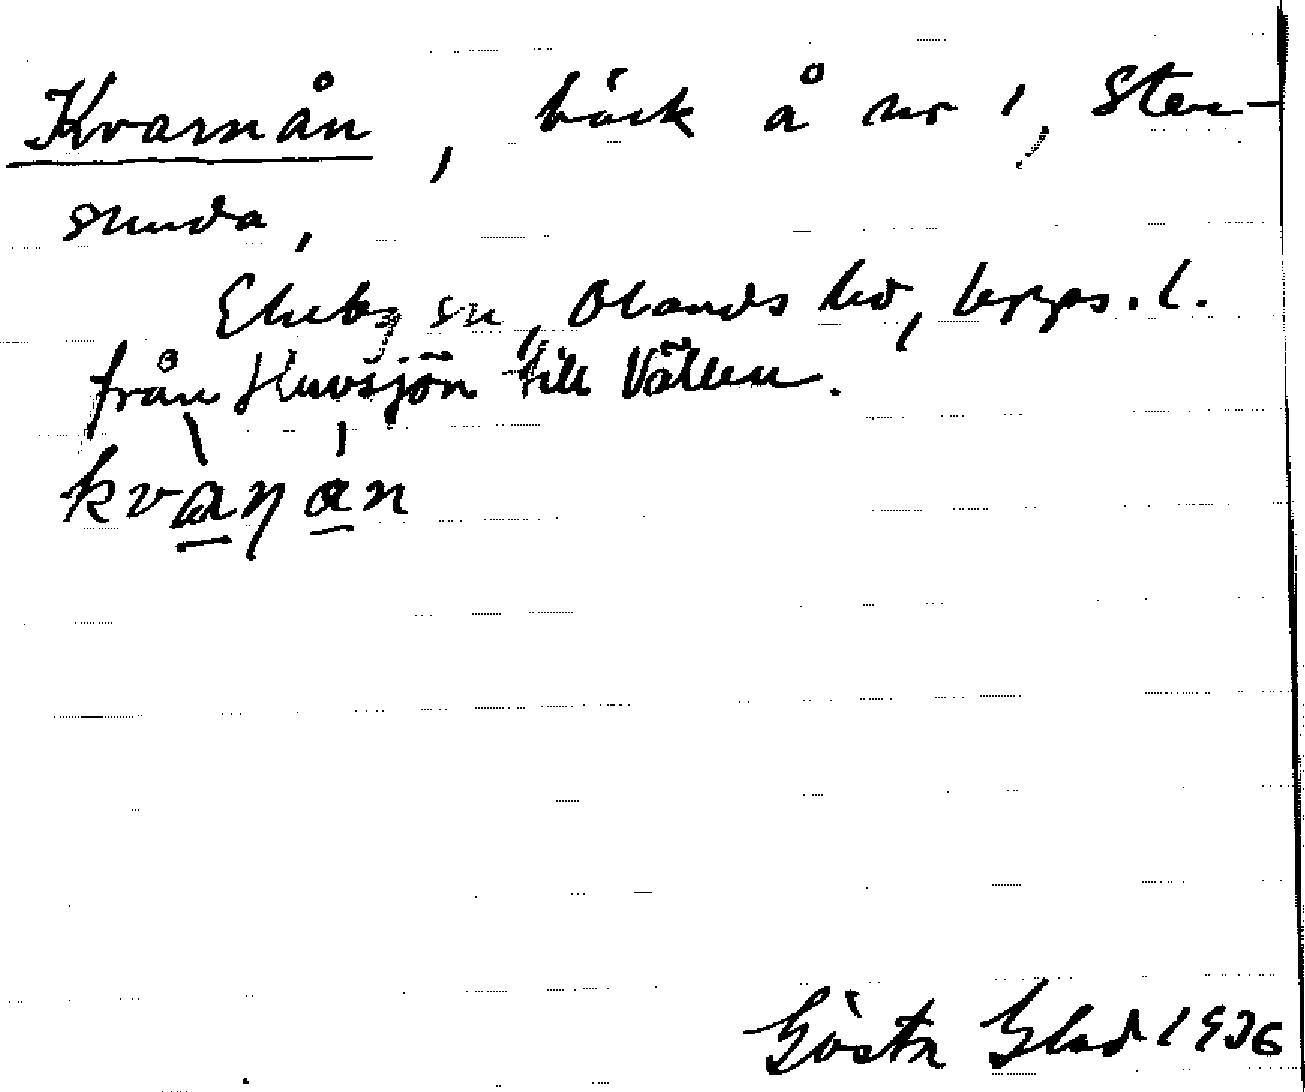 Kvarnån, bäck å nr 1, Sten-
sunda,
Ekeby sn, Olands hd, Upps. l.
från Huvsjön till Vällen.
kvaŋan
Gösta Glad 1936